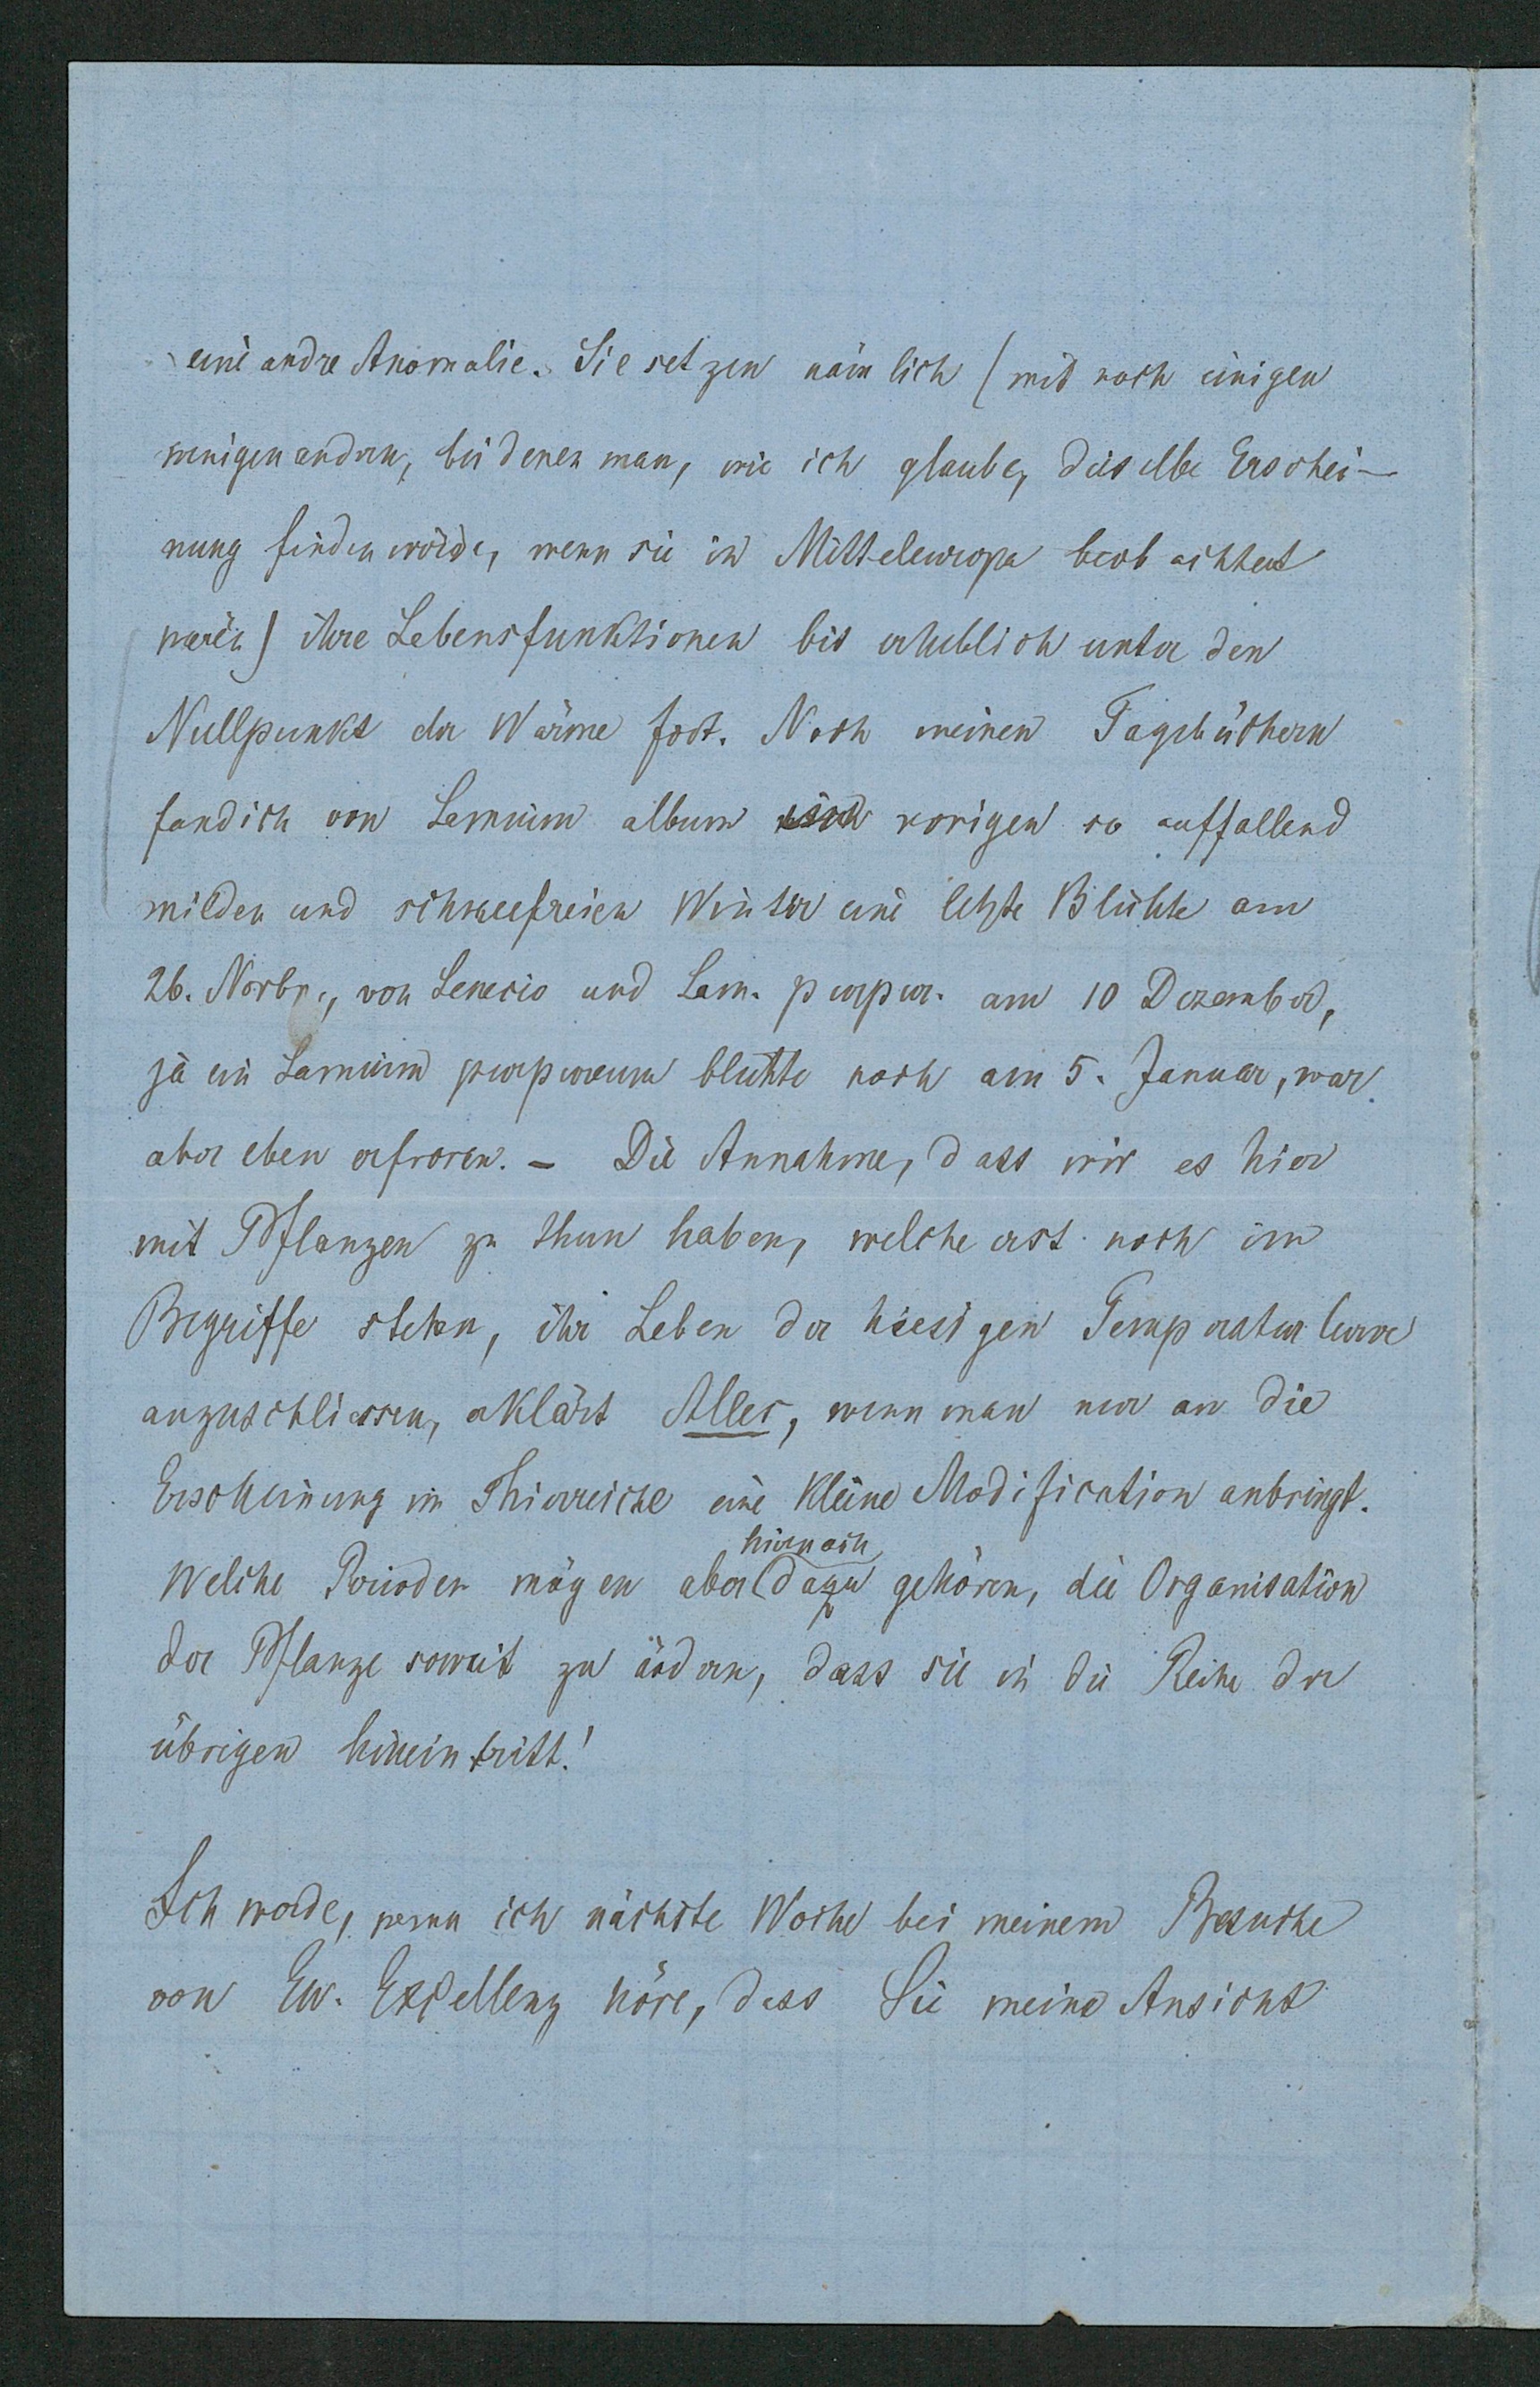 eine andre Anomalie. Sie setzen nämlich (mit noch einigen
wenigen andern, bei denen man, wie ich glaube, dieselbe Erschei-
nung finden würde, wenn sie in Mitteleuropa beobachtet
wären) ihre Lebensfunktionen bis erheblich unter den
Nullpunkt der Wärme fort. Nach meinen Tagebüchern
fand ich von Lamium album vorigen so auffallend
milden und schneefreien Winter eine letzte Blühte am
26. Novbr., von Senecio und Lam. purpur. am 10 Dezember,
ja ein Lamium purpureum blühte noch am 5. Januar, war
aber eben erfroren. – Die Annahme, dass wir es hier
mit Pflanzen zu thun haben, welche erst noch im
Begriffe stehen, ihr Leben der hiesigen Temperaturcurve
anzuschliessen, erklärt Alles, wenn man nur an die
Erscheinung im Thierreiche eine kleine Modification anbringt.
hiernach
Welche Perioden mögen aber dazu gehören, die Organisation
der Pflanze soweit zu ändern, dass sie in die Reihe der
übrigen hineintritt!
Ich werde, wenn ich nächste Woche bei meinem Besuche
von Ew. Excellenz höre, dass Sie meine Ansicht